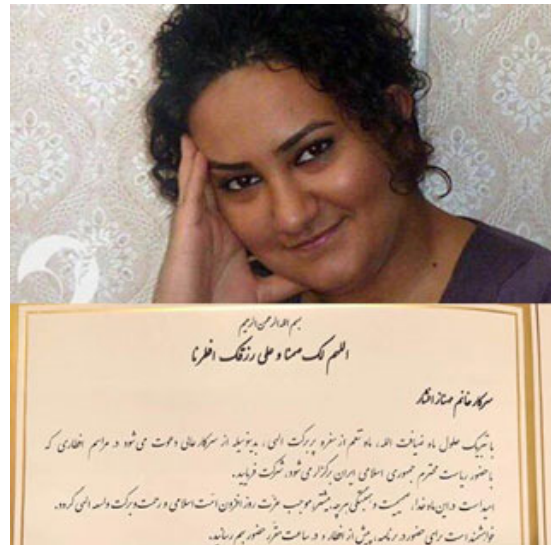 بسم الله الرحمن الرحیم
اللهم لک صمنا و علی رزقک افطرنا
سرکار خانم مهناز افشار
با تبریک حلول ماه ضیافت الله، ماه تنعم از سفره پر برکت الهی، بدینوسیله از سرکار عالی دعوت می شود در مراسم افطاری که
با حضور ریاست محترم جمهوری اسلامی ایران برگزار می شود، شرکت فرمایید.
امید است در این ماه خدا، صمیمیت و همبستگی هر چه بیشتر موجب عزت روز افزون امت اسلامی و رحمت و برکت واسعه الهی گردد.
خواهشمند است برای حضور در برنامه، پیش از افطار و در ساعت مقرر حضور بهم رسانید.